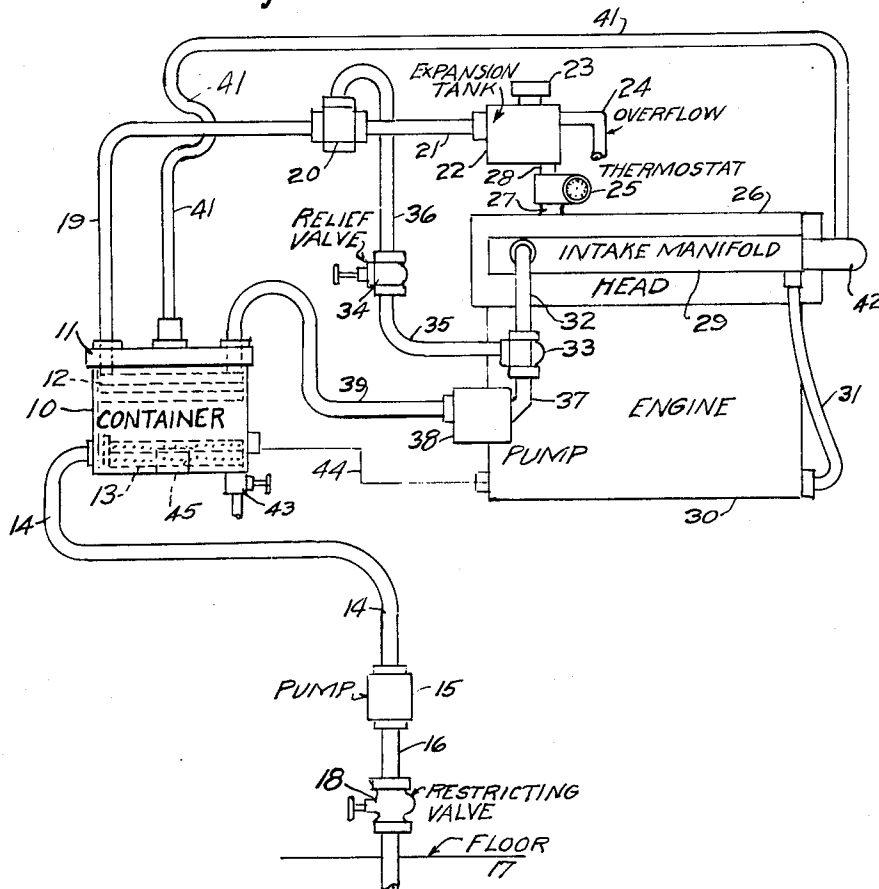 41
41
EXPANSION
TANK
23
24
OVERFLOW
20
21
22
28
THERMOSTAT
25
27
26
19
41
36
RELIEF
VALVE
34
INTAKE MANIFOLD
HEAD
29
42
11
35
32
33
12
10
CONTAINER
39
37
ENGINE
31
38
PUMP
44
13
45
43
30
14
14
PUMP
15
16
18
RESTRICTING
VALVE
FLOOR
17